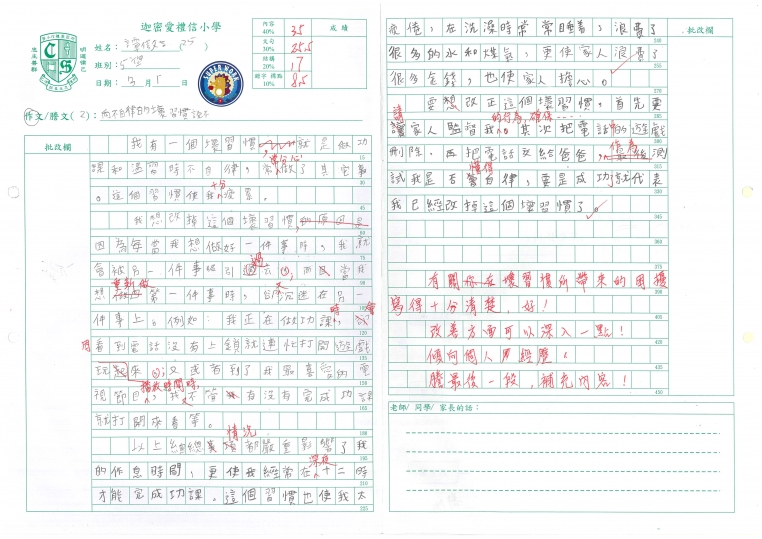 迦密愛禮信小學
姓名：
班別：
日期：3月1日
忠主善群
明道律己
SUPER WORK
內容 40% 35
文句 30% 25.5
結構 20% 17
錯字 標點 10% 8.5
成績
作文/謄文( 2 )：向不自律的壞習慣說不
批改欄
我有一個壞習慣，就是做功
課和溫習時不自律，做了其它事
。這個習慣使我十分疲累。
我想改掉這個壞習慣，
因為每當我想做好一件事時，我就
會被另一件事吸引過去，而當我
想重新做第一件事時，卻又沉迷在另一
件事上。例如：我正在做功課時，會
看到電話沒有上鎖就連忙打開遊戲
玩起來；又或者到了我最喜愛的電
視節目播放時間時，我不管有沒有完成功課
就打開來看等。
以上總總情況都嚴重影響了我
的作息時間，更使我經常在深夜十二時
才能完成功課。這個習慣也使我太
疲倦，在洗澡時常常睡着，浪費了
很多的水和煤氣，更使家人浪費了
很多金錢，也使家人擔心。
要想改正這個壞習慣，首先要
請家人監督我的行為，確保……其次把電話的遊戲
刪除，再把電話交給爸爸，作為測
試我是否懂得自律，要是成功就代表
我已經改掉這個壞習慣了。
有關你在壞習慣所帶來的困擾
寫得十分清楚，好！
改善方面可以深入一點！
傾向個人的經歷。
謄最後一段，補充內容！
老師/同學/家長的話：